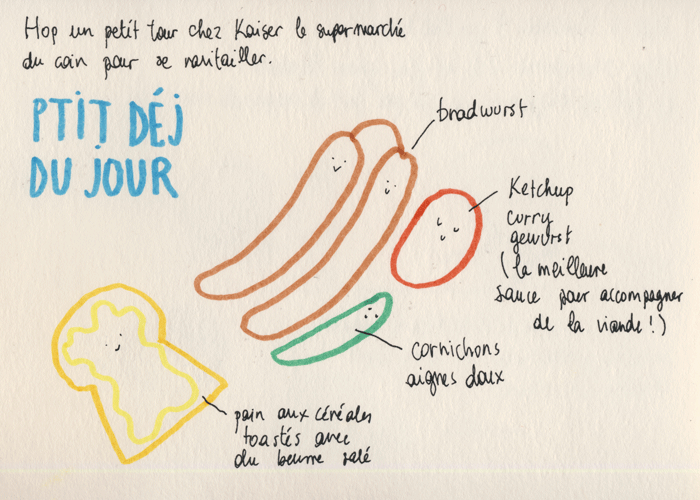 Hop un petit tour chez Kaiser le supermarché
du coin pour se ravitailler.
PTIT DÉJ
DU JOUR
bradwurst
Ketchup
curry
gewurst
(la meilleure
sauce pour accompagner
de la viande!)
cornichons
aigres doux
pain aux céréales
toastés avec
du beurre salé